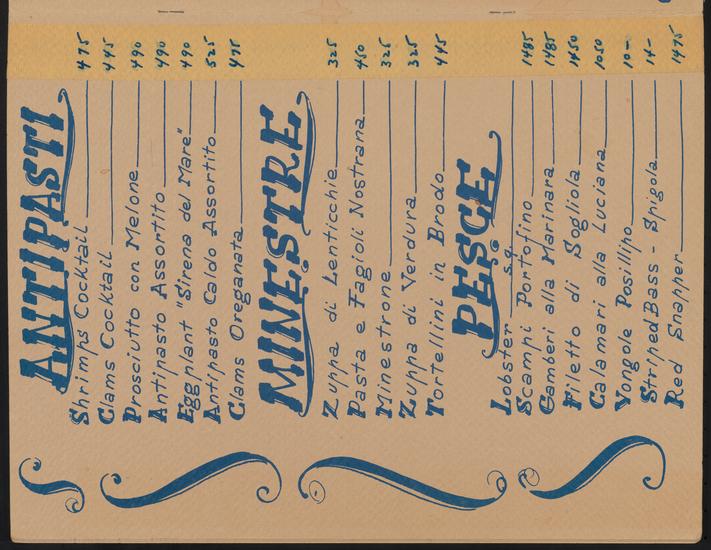 ANTIPASTI
Shrimps Cocktail 475
Clams Cocktail 495
Prosciutto con Melone 490
Antipasto Assortito 490
Eggplant "Sirena del Mare" 490
Antipasto Caldo Assortito 525
Clams Oreganata 495
MINESTRE
Zuppa di Lenticchie 325
Pasta e Fagioli Nostrana 450
Minestrone 325
Zuppa di Verdura 325
Tortellini in Brodo 445
PESCE
Lobster s.q.
Scampi Portofino 1485
Gamberi alla Marinara 1485
Filetto di Sogliola 1450
Calamari alla Luciana 1050
Vongole Posillipo 10-
Striped Bass - Spigola 14-
Red Snapper 1475